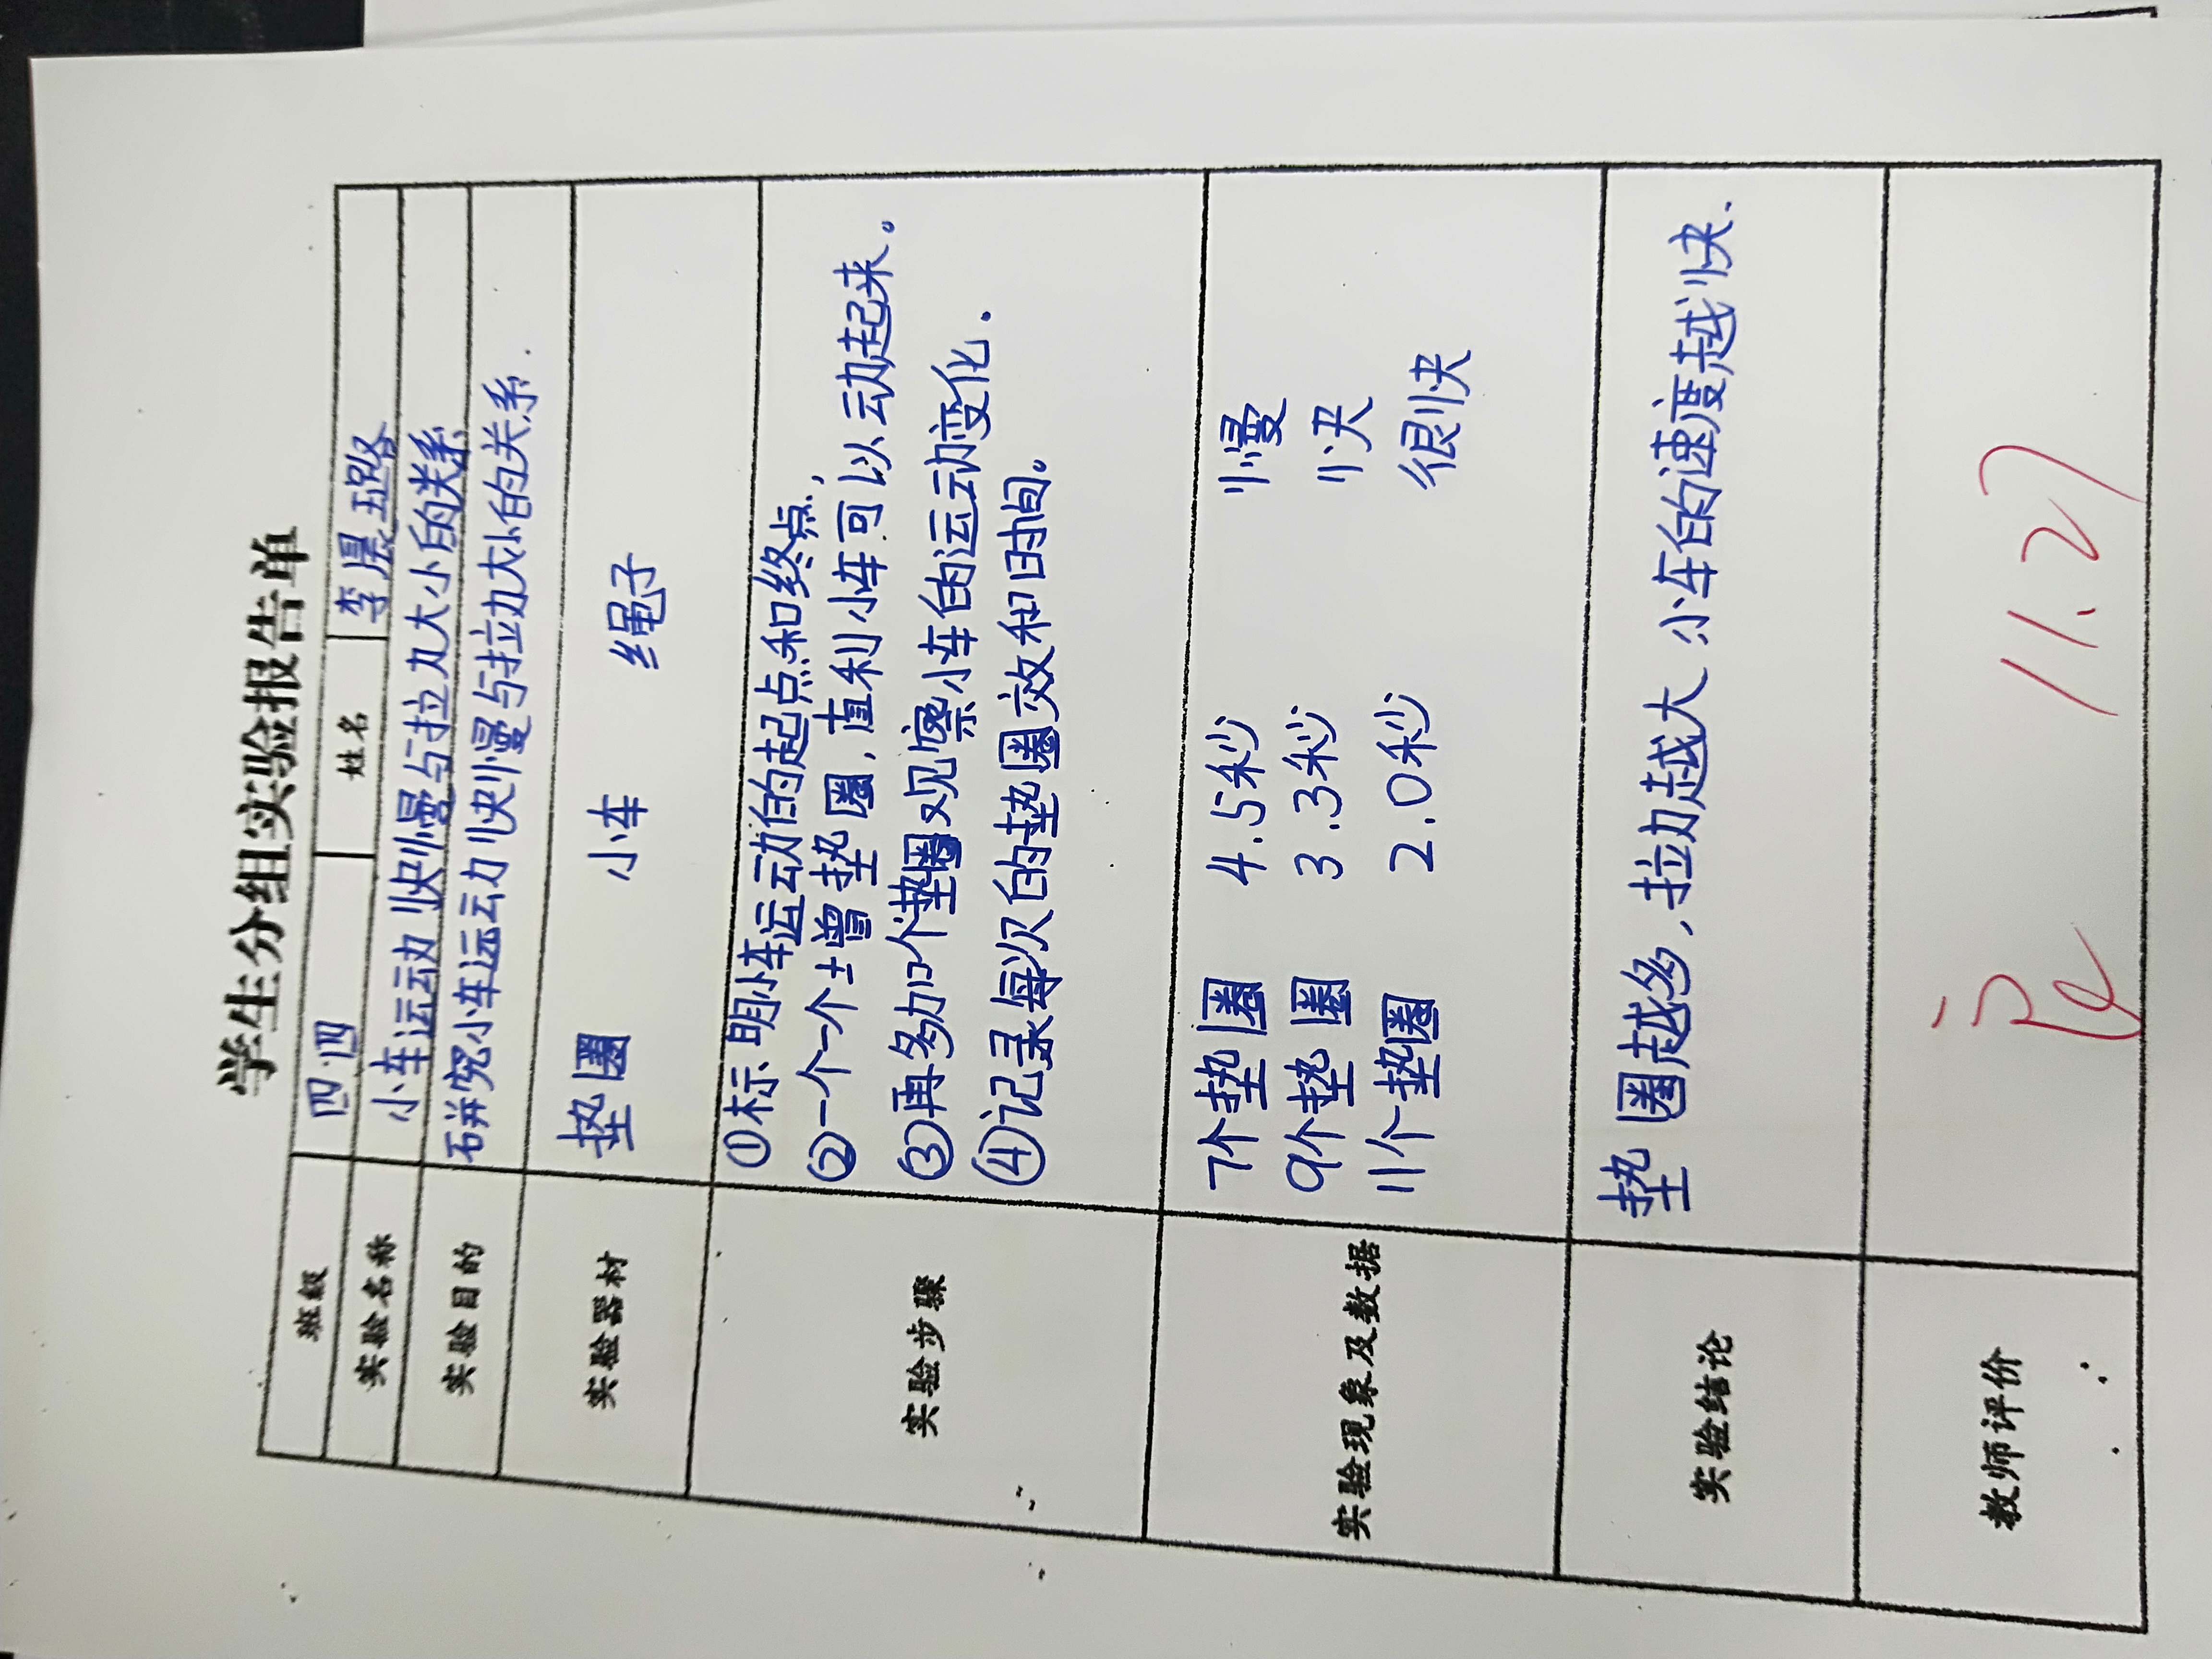 学生分组实验报告单
班级 四.四 姓名 李晨璐
实验名称 小车运动快慢与拉力大小的关系
实验目的 研究小车运动快慢与拉力大小的关系.
实验器材 垫圈 小车 绳子
实验步骤
①标明小车运动的起点和终点,
②一个一个增垫圈,直利小车可以动起来。
③再多加个垫圈观察小车的运动变化.
④记录每次的垫圈效和时间。
实验现象及数据
7个垫圈 4.5秒 慢
9个垫圈 3.3秒 快
11个垫圈 2.0秒 很快
实验结论 垫圈越多,拉力越大 小车的速度越快.
教师评价
11.27